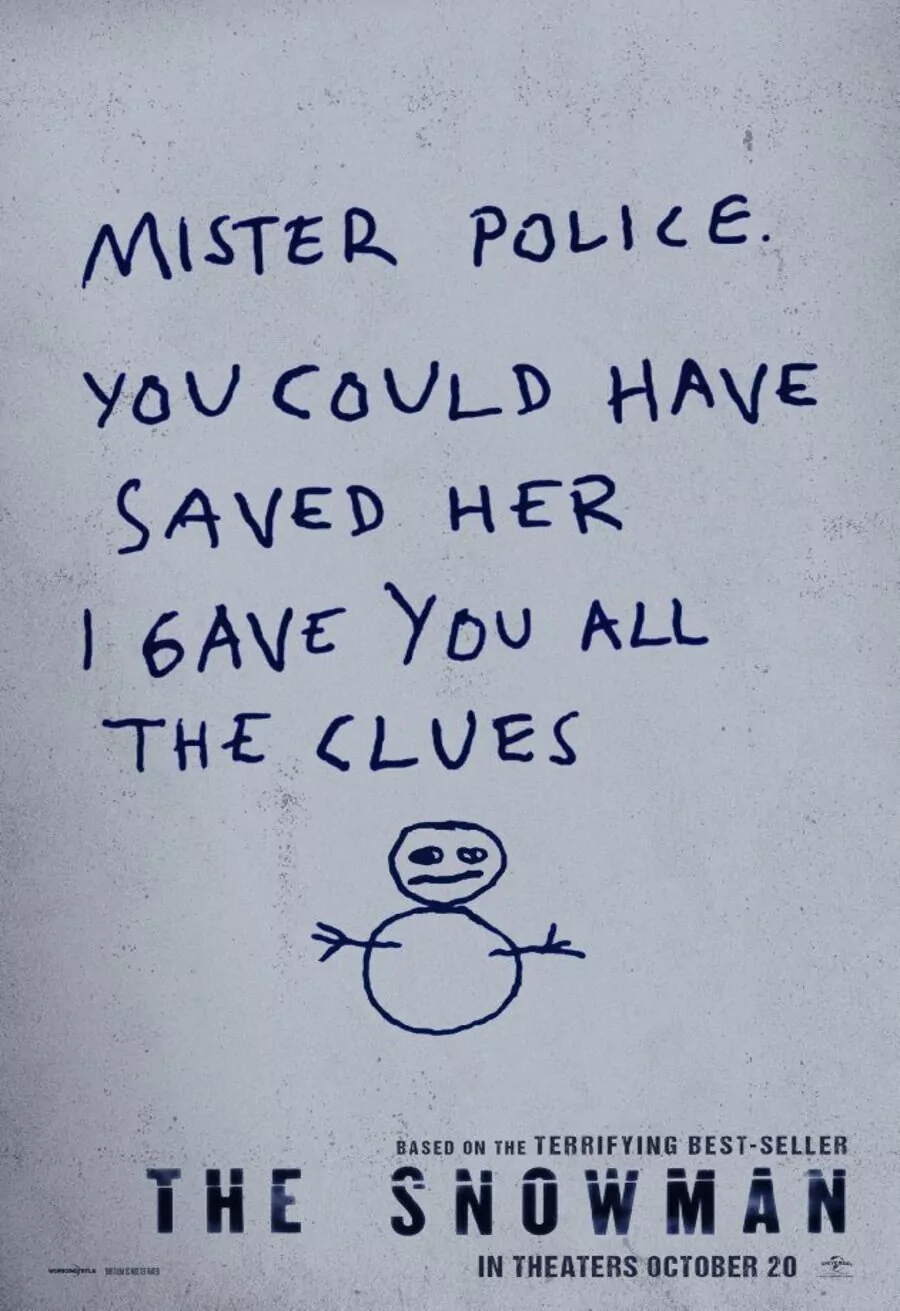 MISTER POLICE.
YOU COULD HAVE
SAVED HER
I GAVE YOU ALL
THE CLUES
BASED ON THE TERRIFYING BEST-SELLER
THE SNOWMAN
IN THEATERS OCTOBER 20
WORKING TITLE
UNIVERSAL